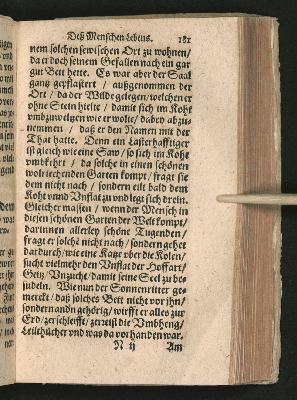 Deß Menschen Lebens. 181
nem solchen sewischen Ort zu wohnen/
da er doch seinem Gefallen nach ein gar
gut Bett hette. Es war aber der Saal
gantz gepflastert / außgenommen der
Ort / da der Wilde gelegen/welchen er
ohne Stein hielte / damit sich im Koht
umbzuweltzen wie er wolte/ dabey abzu-
nemmen / daß er den Namen mit der
That hatte. Denn ein Lasterhafftiger
ist gleich wie eine Saw/ so sich im Koht
umbkehrt / da solche in einen schönen
wolriechenden Garten kompt/ fragt sie
dem nicht nach / sondern eilt bald dem
Koht unnd Unflat zu und legt sich drein.
Gleicher massen / wenn der Mensch in
diesen schönen Garten der Welt kompt/
darinnen allerley schöne Tugenden/
fragt er solchẽ nicht nach/ sondern gehet
dardurch/ wie eine Katze über die Kolen/
sucht vielmehr den Unflat der Hoffart/
Geitz/ Unzucht/ damit seine Seel zu be-
sudeln. Wie nun der Sonnenritter ge-
merckt/ daß solches Bett nicht vor ihn/
sondern andn gehörig/ wirfft er alles zur
Erd/ zerschleifft/ zerreist die Umbheng/
Leilthücher und was da vorhanden war.
N ij Am